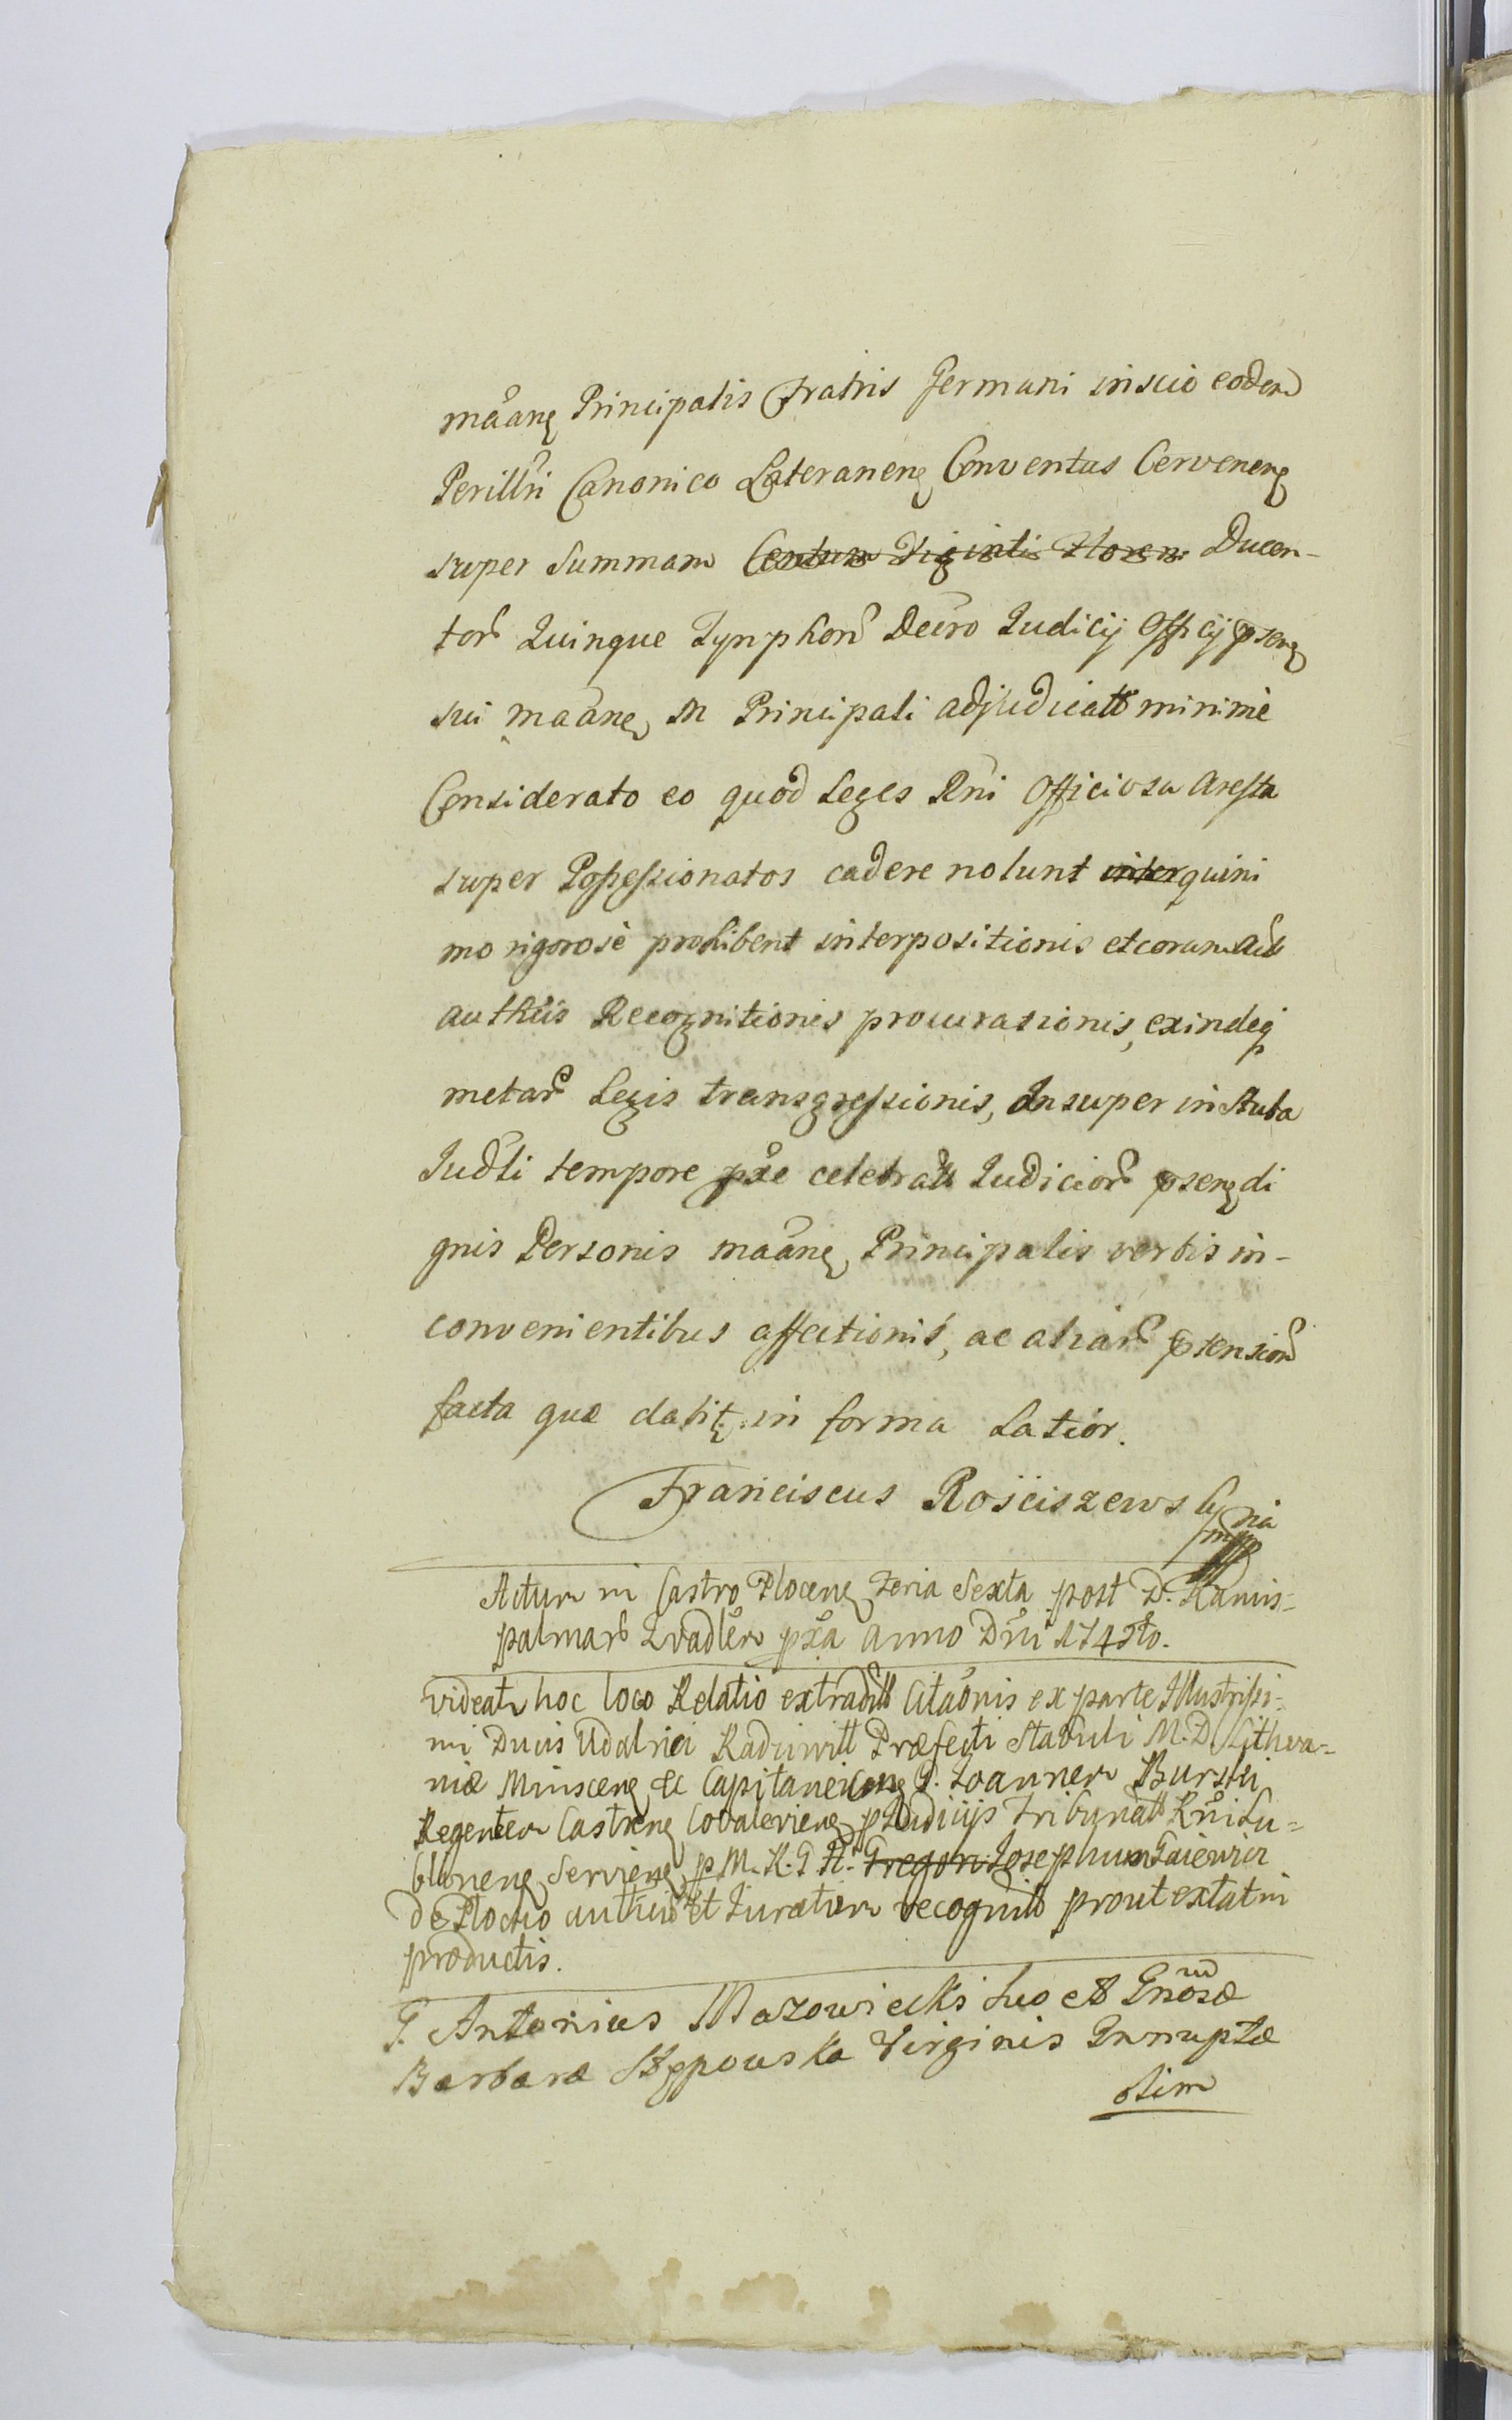 mãanę Principalis Fratris Germani inscio eodem
Perillri Canonico Lateranenę Conventus Cervenenę
super Summam Centum Viginti Floren Ducen-
tor Quinque Tynphon Decro Judicij Officij psenę
sui maanę M Principali adjudicato minimè
Considerato eo quod Leges Rni Officiosa Aresta
super Possessionatos cadere nolunt inter quini
mo rigorosè prohibent interpositionis et coram Actis
authcis Recognitionis procurasionis, exindeq
metar Legis transgressionis, Insuper in stuba
Judli tempore pxe celebratt Judicior psenę di
gnis Personis maanę Principalis verbis in-
convenientibus affectionis, ac aliar ptension
facta quæ dabitę in forma Latior.
Franciscus Rościszewsky mpp
Actum in Castro Plocenę Feria Sexta post D. Ramis-
palmar Quadler pxa Anno Dni 1742do.
Videatr hoc loco Relatio extraditt Citaonis ex parte Illustrissi-
mi Ducis Udalrici Radziwill Præfecti Stabuli M. D. Lithva-
niæ Minscenę &c Capitanei G. Joannem Burski
Regentem Castrenę Covalevienę p Judiciis Tribunatt Rni Lu-
blinenę Servienę p M. R. G. R. Gregori Josephum Gaiewicz
de Plocko authcu et Juratum recognitt prout extat in
productis.
G. Antonius Mazowiecki suo et Gnosæ
Barbaræ Stępowska Virginis Innuptæ
olim